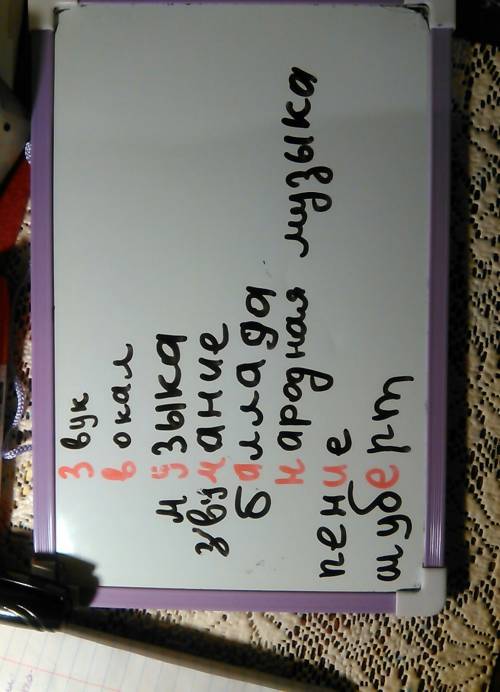 Звук
вокал
музыка
звучание
баллада
народная музыка
пение
шуберт